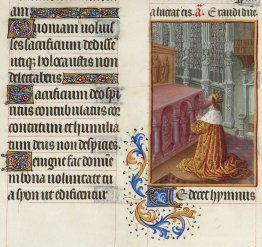 Quoniam voluis
ses sacrificium dedisse
utique holocaustis non
delectaberis
Sacrificium deo spi
ritus contribulatus cor
contritum et humilia
tum deus non despicies
Benigne fac domine
in bona voluntate tu
a syon ut edificent
a. Exaudi dne
Te decet hymnus